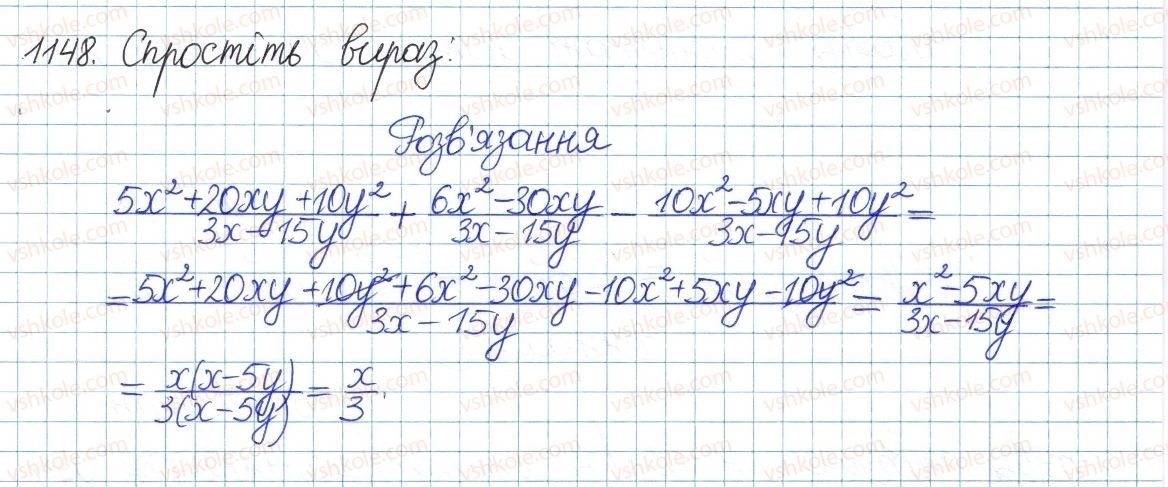 1148. Спростіть вираз:
Розв'язання
(5x²+20xy+10y²)/(3x-15y) + (6x²-30xy)/(3x-15y) - (10x²-5xy+10y²)/(3x-15y) =
= (5x²+20xy+10y²+6x²-30xy-10x²+5xy-10y²)/(3x-15y) = (x²-5xy)/(3x-15y) =
= x(x-5y)/3(x-5y) = x/3.